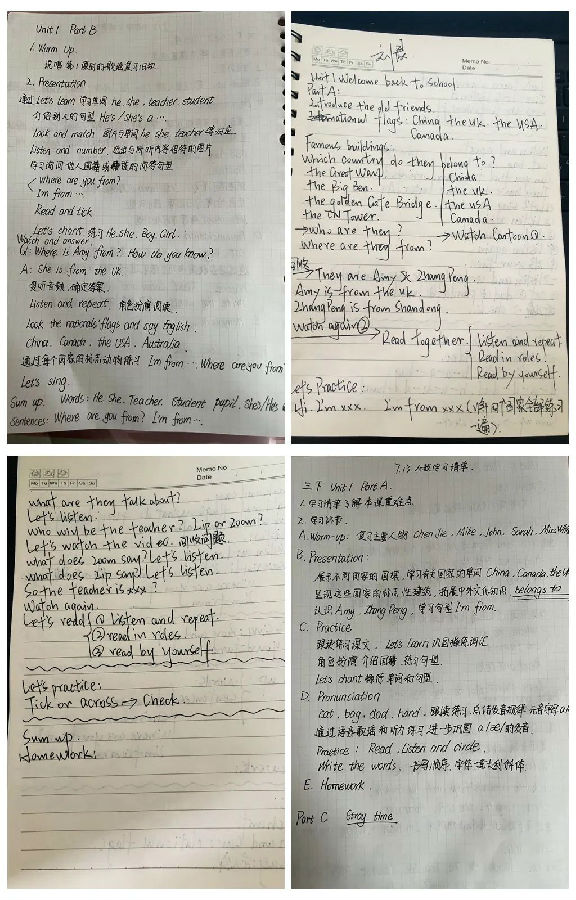 Unit 1 Part B
1. Warm Up.
2. Presentation
Let's learn 学习单词 he, she, teacher, student
介绍他人的句型 He's / She's a ...
Look and match 图片与单词 he she teacher
Listen and number.
学习询问他人国籍或
/ Where are you from?
\ I'm from ...
Read and tick
Let's chant 练习 He. She. Boy. Girl.
Watch and answer.
Q: Where is Amy from? How do you know?
A: She is from the UK.
Listen and repeat 角色扮演
Look the nationals' flags and say English.
China. Canada. the USA. Australia
I'm from ... Where are you from
Let's sing.
Sum up. Words: He. She. Teacher. Student. pupil. She's/He's a
Sentences: Where are you from? I'm from ...
Memo No.
Mo Tu We Th Fr Sa Su
Date
Unit 1 Welcome back to school.
Part A:
Introduce the old friends.
International flags: China the uk. the USA.
Canada.
Famous buildings.
Which country do they belong to?
the Great Wall. China
the Big Ben. the uk.
the golden Gate Bridge. the usA
the CN Tower. Canada.
→ who are they? → Watch Cartoon①.
where are they from?
→ They are Amy 和 Zhang Peng.
Amy is from the uk
Zhang Peng is from Shandong.
Watch again②
→ Read together { Listen and repeat
Read in roles.
Read by yourself.
Let's Practice:
I'm xxx. I'm from xxx (
Memo No.
Mo Tu We Th Fr Sa Su
Date
what are they talk about?
Let's listen.
Who will be the teacher? Zip or Zoom?
Let's watch the video. 回答问题.
what does Zoom say? Let's listen.
what does Zip say? Let's listen
So the teacher is xxx?
Watch again.
Let's read { ① listen and repeat.
② read in roles.
③ read by yourself.
Let's practice:
Tick or across → Check
Sum up
Homework:
三下 Unit 1 Part A.
1. 学习清单了解本课重难点
2. 学习内容:
A. Warm-up: 复习主要人物 Chen Jie, Mike, John, Sarah, Miss White
B. Presentation:
展示不同国家的国旗, 学习有关国家的单词 China, Canada, the UK
呈现这些国家的标志性建筑, 拓展中外文化知识 belongs to
认识 Amy, Zhang Peng, 学习句型 I'm from.
C. Practice
跟读练习课文, Let's learn 巩固操练词汇
角色扮演 介绍国籍, 练习句型.
Let's chant 操练单词和句型.
D. Pronunciation
cat, bag, dad, hand, 跟读练习, 总结发音规律
Practice: Read, Listen and circle.
Write the words,
E. Homework.
Part C Story time